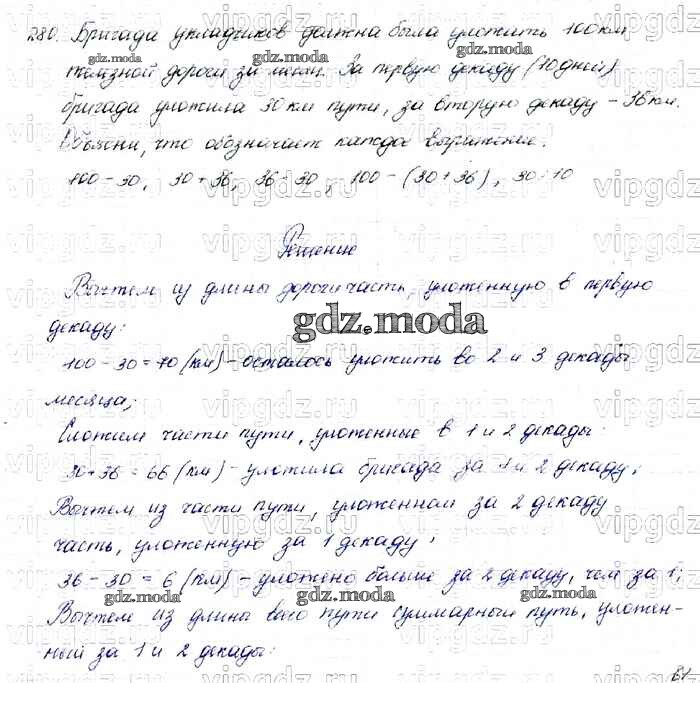 280. Бригада укладчиков должна была уложить 100 км
железной дороги за месяц. За первую декаду (10 дней)
бригада уложила 30 км пути, за вторую декаду – 36 км.
Объясни, что обозначает каждое выражение.
100 – 30, 30 + 36, 36 – 30, 100 – (30 + 36), 30 : 10
Решение
Вычтем из длины дороги часть, уложенную в первую
декаду:
gdz.moda
100 – 30 = 70 (км) – осталось уложить во 2 и 3 декады
месяца;
Сложим части пути, уложенные в 1 и 2 декады:
30 + 36 = 66 (км) – уложила бригада за 1 и 2 декаду;
Вычтем из части пути, уложенной за 2 декаду
часть, уложенную за 1 декаду;
36 – 30 = 6 (км) – уложено больше за 2 декаду, чем за 1;
Вычтем из длины всего пути суммарный путь, уложен-
ный за 1 и 2 декады:
81